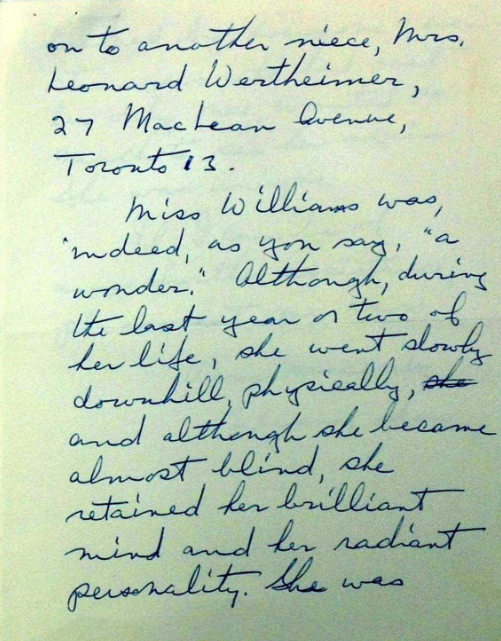 on to another niece, Mrs.
Leonard Wertheimer,
27 MacLean Avenue,
Toronto 13.
Miss Williams was,
indeed, as you say, "a
wonder." Although, during
the last year or two of
her life, she went slowly
downhill, physically, she
and although she became
almost blind, she
retained her brilliant
mind and her radiant
personality. She was